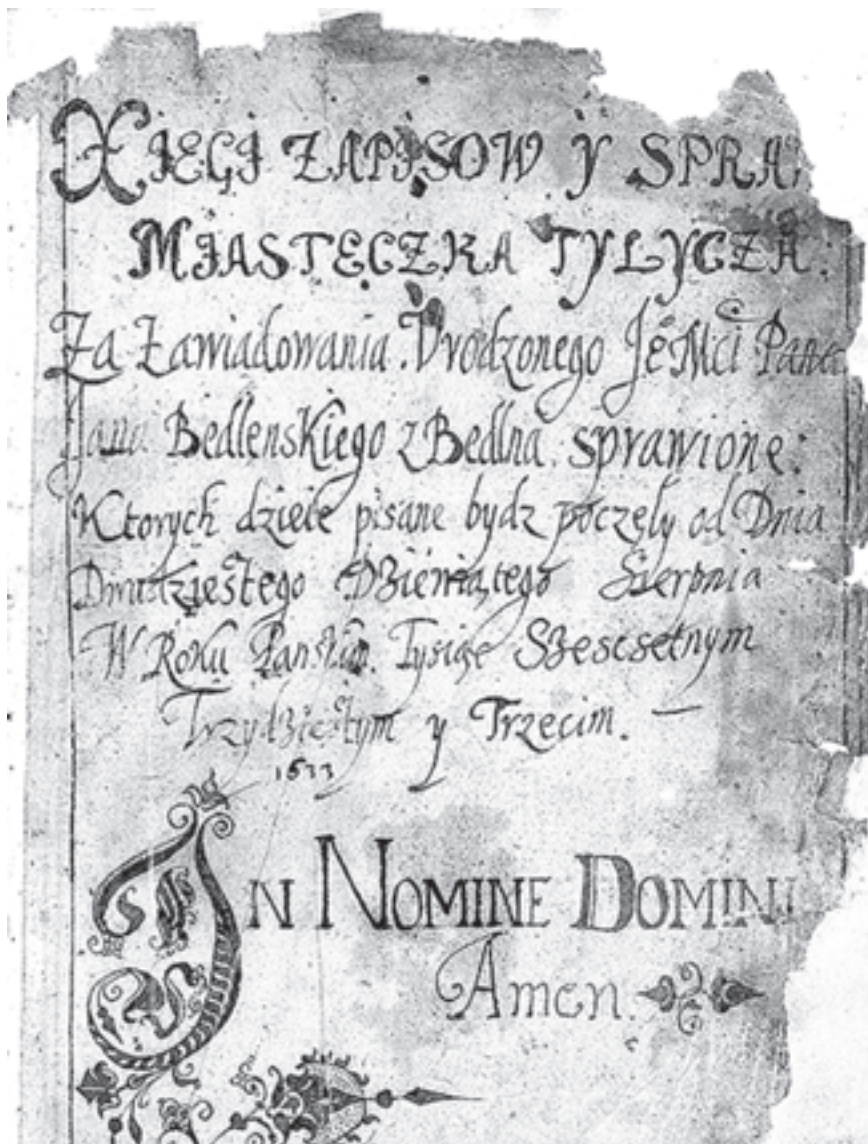 XIĘGI ZAPISOW Y SPRAW
MIASTECZKA TYLYCZA.
Za Zawiadowania. Vrodzonego Je Mći Pana
Jana Bedlenskiego z Bedlna. sprawione:
Ktorych dzieie pisane bydz poczęły od Dnia
Dwudziestego Dziewiątego Sierpnia
W Roku Panskim. Tysiąc Szescsetnym
Trzydziestym y Trzecim.
1633
IN NOMINE DOMINI
Amen.